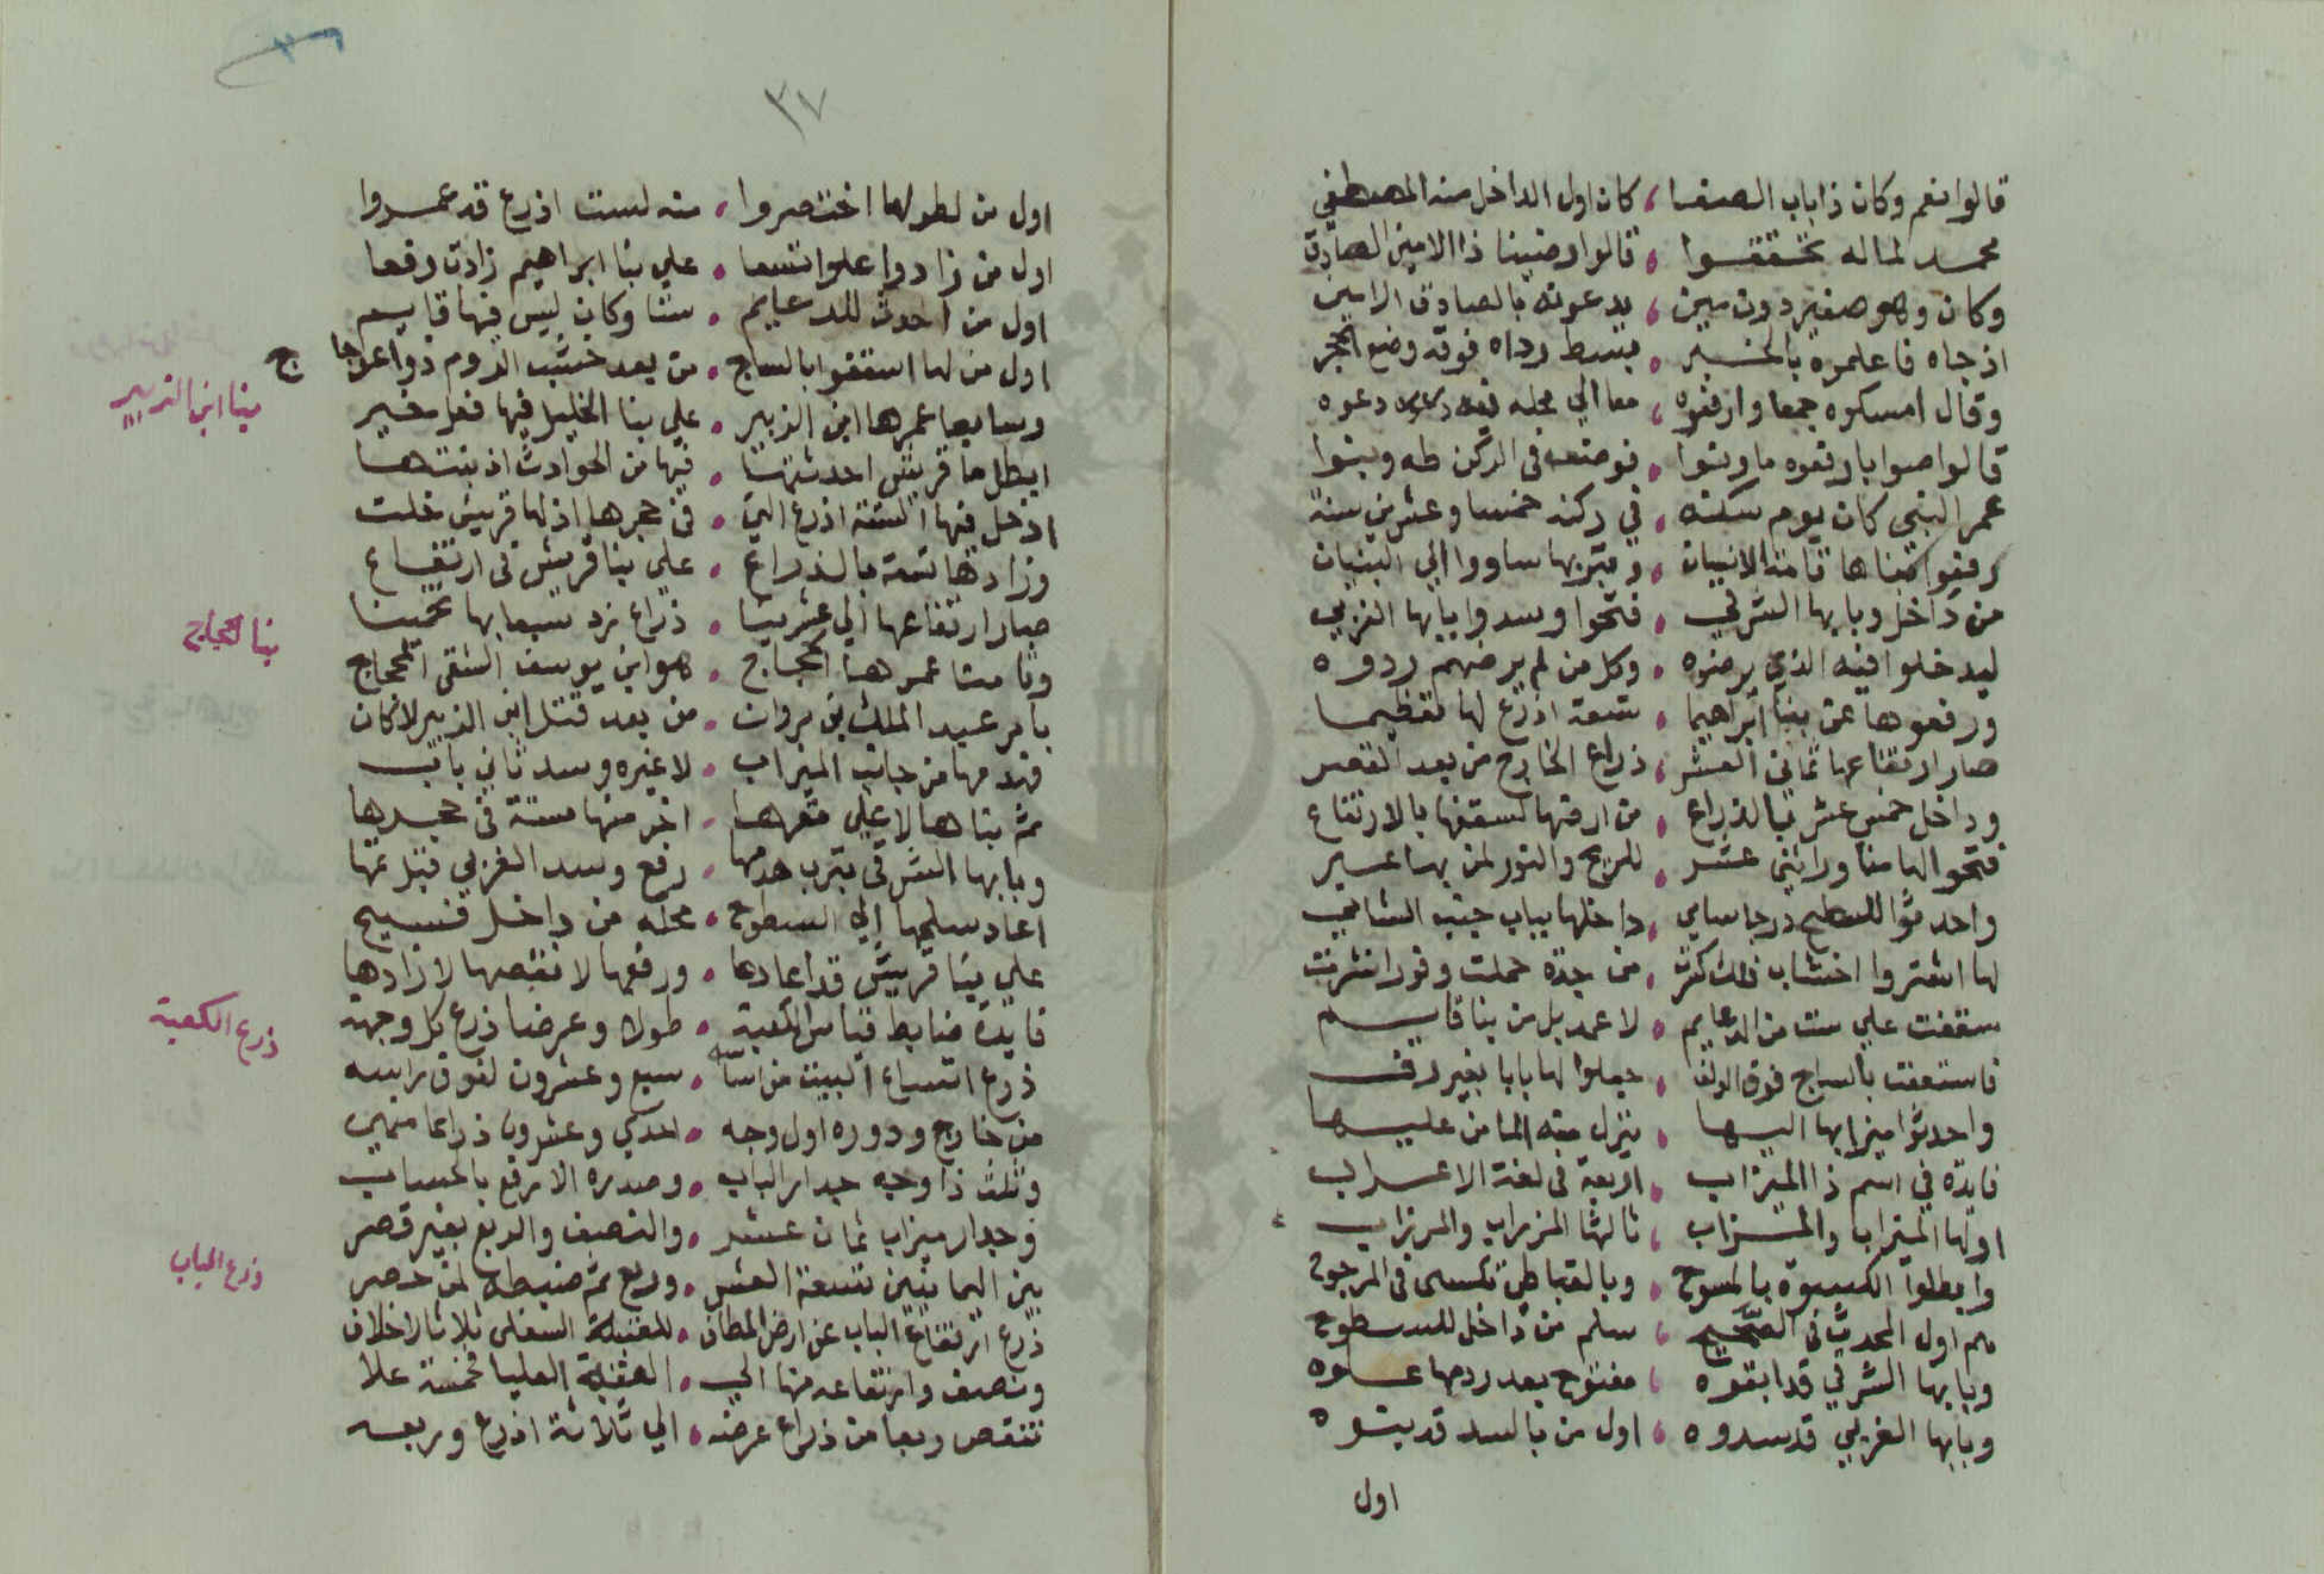 قالوا نعم وكان ذا باب الصفا ، كان اول الداخل منه المصطفي
محمد لما له تحققوا ، قالوا رضينا ذا الامين الصادق
وكان وهو صغير دون مين ، يدعونه بالصادق الامين
اذ جاه فاعلموه بالخبر ، بسط رداه فوقه وضع الحجر
وقال امسكوه جمعا وارفعوه ، معا الي محله دعوه
قالوا صوابا رفعوه ما ونوا ، فوضعه في الركن طه وبنوا
عمر النبي كان يوم سكنه ، في ركنه خمسا وعشرين سنة
رفعوا بناها قامة الانسان ، وتربها ساووا الي البنيان
من داخل وبابها الشرقي ، فتحوا وسدوا بابها الغربي
ليدخلوا فيه الذي يرضوه ، وكل من لم يرضهم ردوه
ورفعوها عن بنا ابراهيما ، تسعة اذرع لها تعظيما
صار ارتفاعها ثماني العشر ، ذراع الخارج من بعد القصر
وداخل خمس عشر بالذراع ، من ارضها لسقفها بالارتفاع
فتحوا لها مناور اثني عشر ، للريح والنور لمن بها عسير
واحدثوا للسطح درجا سامي ، داخلها بباب جنب الشامي
لها اشتروا اخشاب فلك كثرت ، من جدة حملت وفورا نشرت
سقفت علي ست من الدعايم ، لا عمد بل من بنا قايم
فاستعفت بالساج فوق الدلفا ، جعلوا لها بابا بغير دف
واحدثوا ميزابها اليها ، ينزل منه الما من عليها
فايدة في اسم ذا الميزاب ، اربعة في لغة الاعراب
اولها الميزاب والمـزاب ، ثالثها المزراب والمرزاب
وابطلوا الكسوة بالمسوح ، وبالقباطي تكسى في المرجوح
هم اول المحدث في الصحيح ، سلم من داخل للسطوح
وبابها الشرقي قد ابقوه ، مفتوح بعد ردمها علوه
وبابها الغربي قد سدوه ، اول من بالسد قد بتوه
اول
٣٧
اول من لطولها اختصروا ، منه لست اذرع قد عمروا
اول من زادوا علوا تسعا ، علي بنا ابراهيم زادت رفعا
اول من احدث للدعايم ، ستا وكان ليس فيها قايم
اول من لها اسقفوا بالساج ، من بعد خشب الدوم ذو اعوجا ج
وسابعا عمرها ابن الزبير ، علي بنا الخليل فيها فعل خير
ابطل ما قريش احدثتها ، فيها من الحوادث اذ بنتها
ادخل فيها الستة اذرع التي ، في حجرها اذ لها قريش خلت
وزادها تسعة بالذراع ، علي بنا قريش في ارتفاع
صار ارتفاعها الي عشرينا ، ذراع نرد سبعا بها تخمينا
وثامنا عمرها الحجاج ، هو ابن يوسف الثقفي الحجاج
بامر عبد الملك بن مروان ، من بعد قتل ابن الزبير لا كان
فهدمها من جانب الميزاب ، لا غيره وسد ثاني باب
ثم بناها لا علي مقرها ، اخر منها ستة في حجرها
وبابها الشرقي بترب هدمها ، رفع وسد الغربي قبل تمها
اعاد سلمها الي السطوح ، محله من داخل فسيح
علي بنا قريش قد اعادها ، ورفعها لا نقصها لا زادها
فايدة ضابط قياس الكعبة ، طولا وعرضا ذرع كل وجهه
ذرع اتساع البيت من اساسه ، سبع وعشرون لفوق راسه
من خارج ودوره اول وجه ، احدي وعشرون ذراعا منهي
وثلث ذا وجه جدار الباب ، وصدره الارفع بالحساب
وجدار ميزاب ثمان عشر ، والنصف والربع بغير قصر
بين اليمانيين تسعة العشر ، وربع ثم ضبطه لمن حصر
ذرع ارتفاع الباب عن ارض المطاف ، للعتبة السفلى ثلاثا لا خلاف
ونصف وارتفاعه منها الي ، العتبة العليا فخمسة علا
تنقص ربعا من ذراع عرضه ، الي ثلاثة اذرع وربعه
بنا ابن الزبير
بنا الحجاج
ذرع الكعبة
ذرع الباب